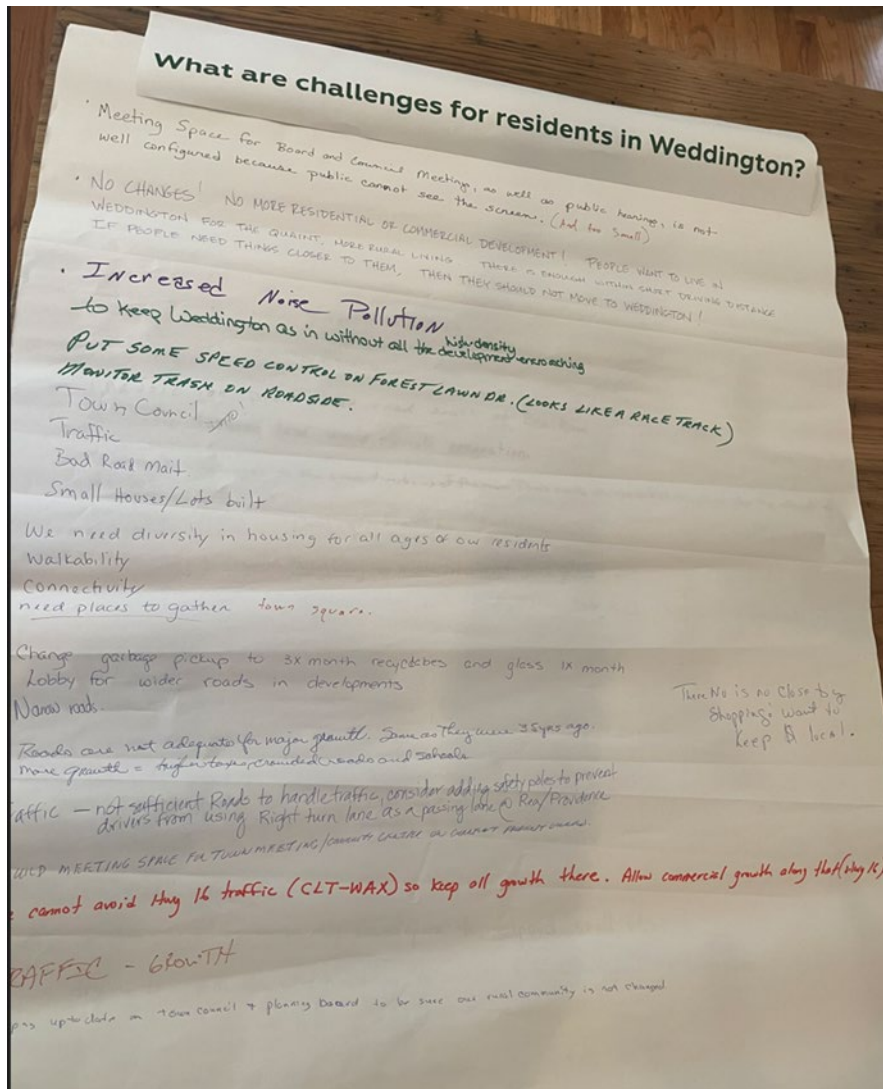 What are challenges for residents in Weddington?
• Meeting Space for Board and Council Meetings, as well as public hearings, is not
well configured because public cannot see the screen. (And too small)
• NO CHANGES! NO MORE RESIDENTIAL OR COMMERCIAL DEVELOPMENT! PEOPLE WANT TO LIVE IN
WEDDINGTON FOR THE QUAINT, MORE RURAL LIVING. THERE IS ENOUGH WITHIN SHORT DRIVING DISTANCE
IF PEOPLE NEED THINGS CLOSER TO THEM, THEN THEY SHOULD NOT MOVE TO WEDDINGTON!
• Increased Noise Pollution
high density
to keep Weddington as in without all the development encroaching
PUT SOME SPEED CONTROL ON FOREST LAWN DR. (LOOKS LIKE A RACE TRACK)
MONITOR TRASH ON ROADSIDE.
Town Council
Traffic
Bad Road Mait.
Small Houses/Lots built
We need diversity in housing for all ages of our residents
Walkability
Connectivity
need places to gather town square.
Change garbage pickup to 3x month recyclebes and glass 1x month
Lobby for wider roads in developments
Narrow roads.
There No is no close by
Shopping: want to
keep it local.
Roads are not adequate for major growth. Same as they were 35yrs ago.
more growth = higher taxes, crowded roads and schools
affic — not sufficient Roads to handle traffic, consider adding safety poles to prevent
drivers from using Right turn lane as a passing lane @ Rea/Providence
MEETING SPACE FOR TOWN MEETING/
cannot avoid Hwy 16 traffic (CLT-WAX) so keep all growth there. Allow commercial growth along that (Hwy 16)
RAFFIC - GROWTH
up to date on town council + planning board to be sure our rural community is not changed